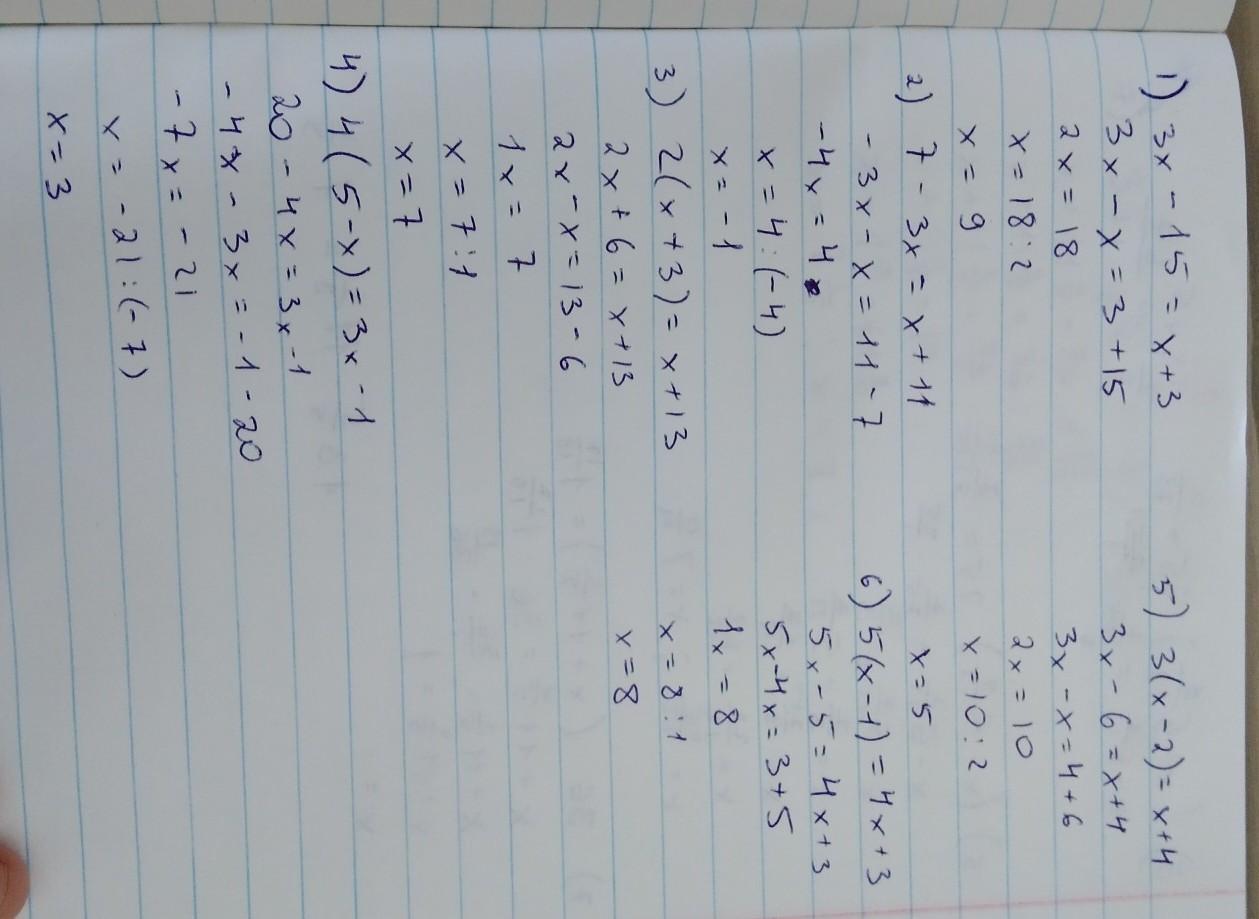 1) 3x - 15 = x + 3
3x - x = 3 + 15
2x = 18
x = 18 : 2
x = 9
2) 7 - 3x = x + 11
- 3x - x = 11 - 7
- 4x = 4
x = 4 : (-4)
x = -1
3) 2(x + 3) = x + 13
2x + 6 = x + 13
2x - x = 13 - 6
1x = 7
x = 7 : 1
x = 7
4) 4(5 - x) = 3x - 1
20 - 4x = 3x - 1
- 4x - 3x = - 1 - 20
- 7x = - 21
x = - 21 : (- 7)
x = 3
5) 3(x - 2) = x + 4
3x - 6 = x + 4
3x - x = 4 + 6
2x = 10
x = 10 : 2
x = 5
6) 5(x - 1) = 4x + 3
5x - 5 = 4x + 3
5x - 4x = 3 + 5
1x = 8
x = 8 : 1
x = 8